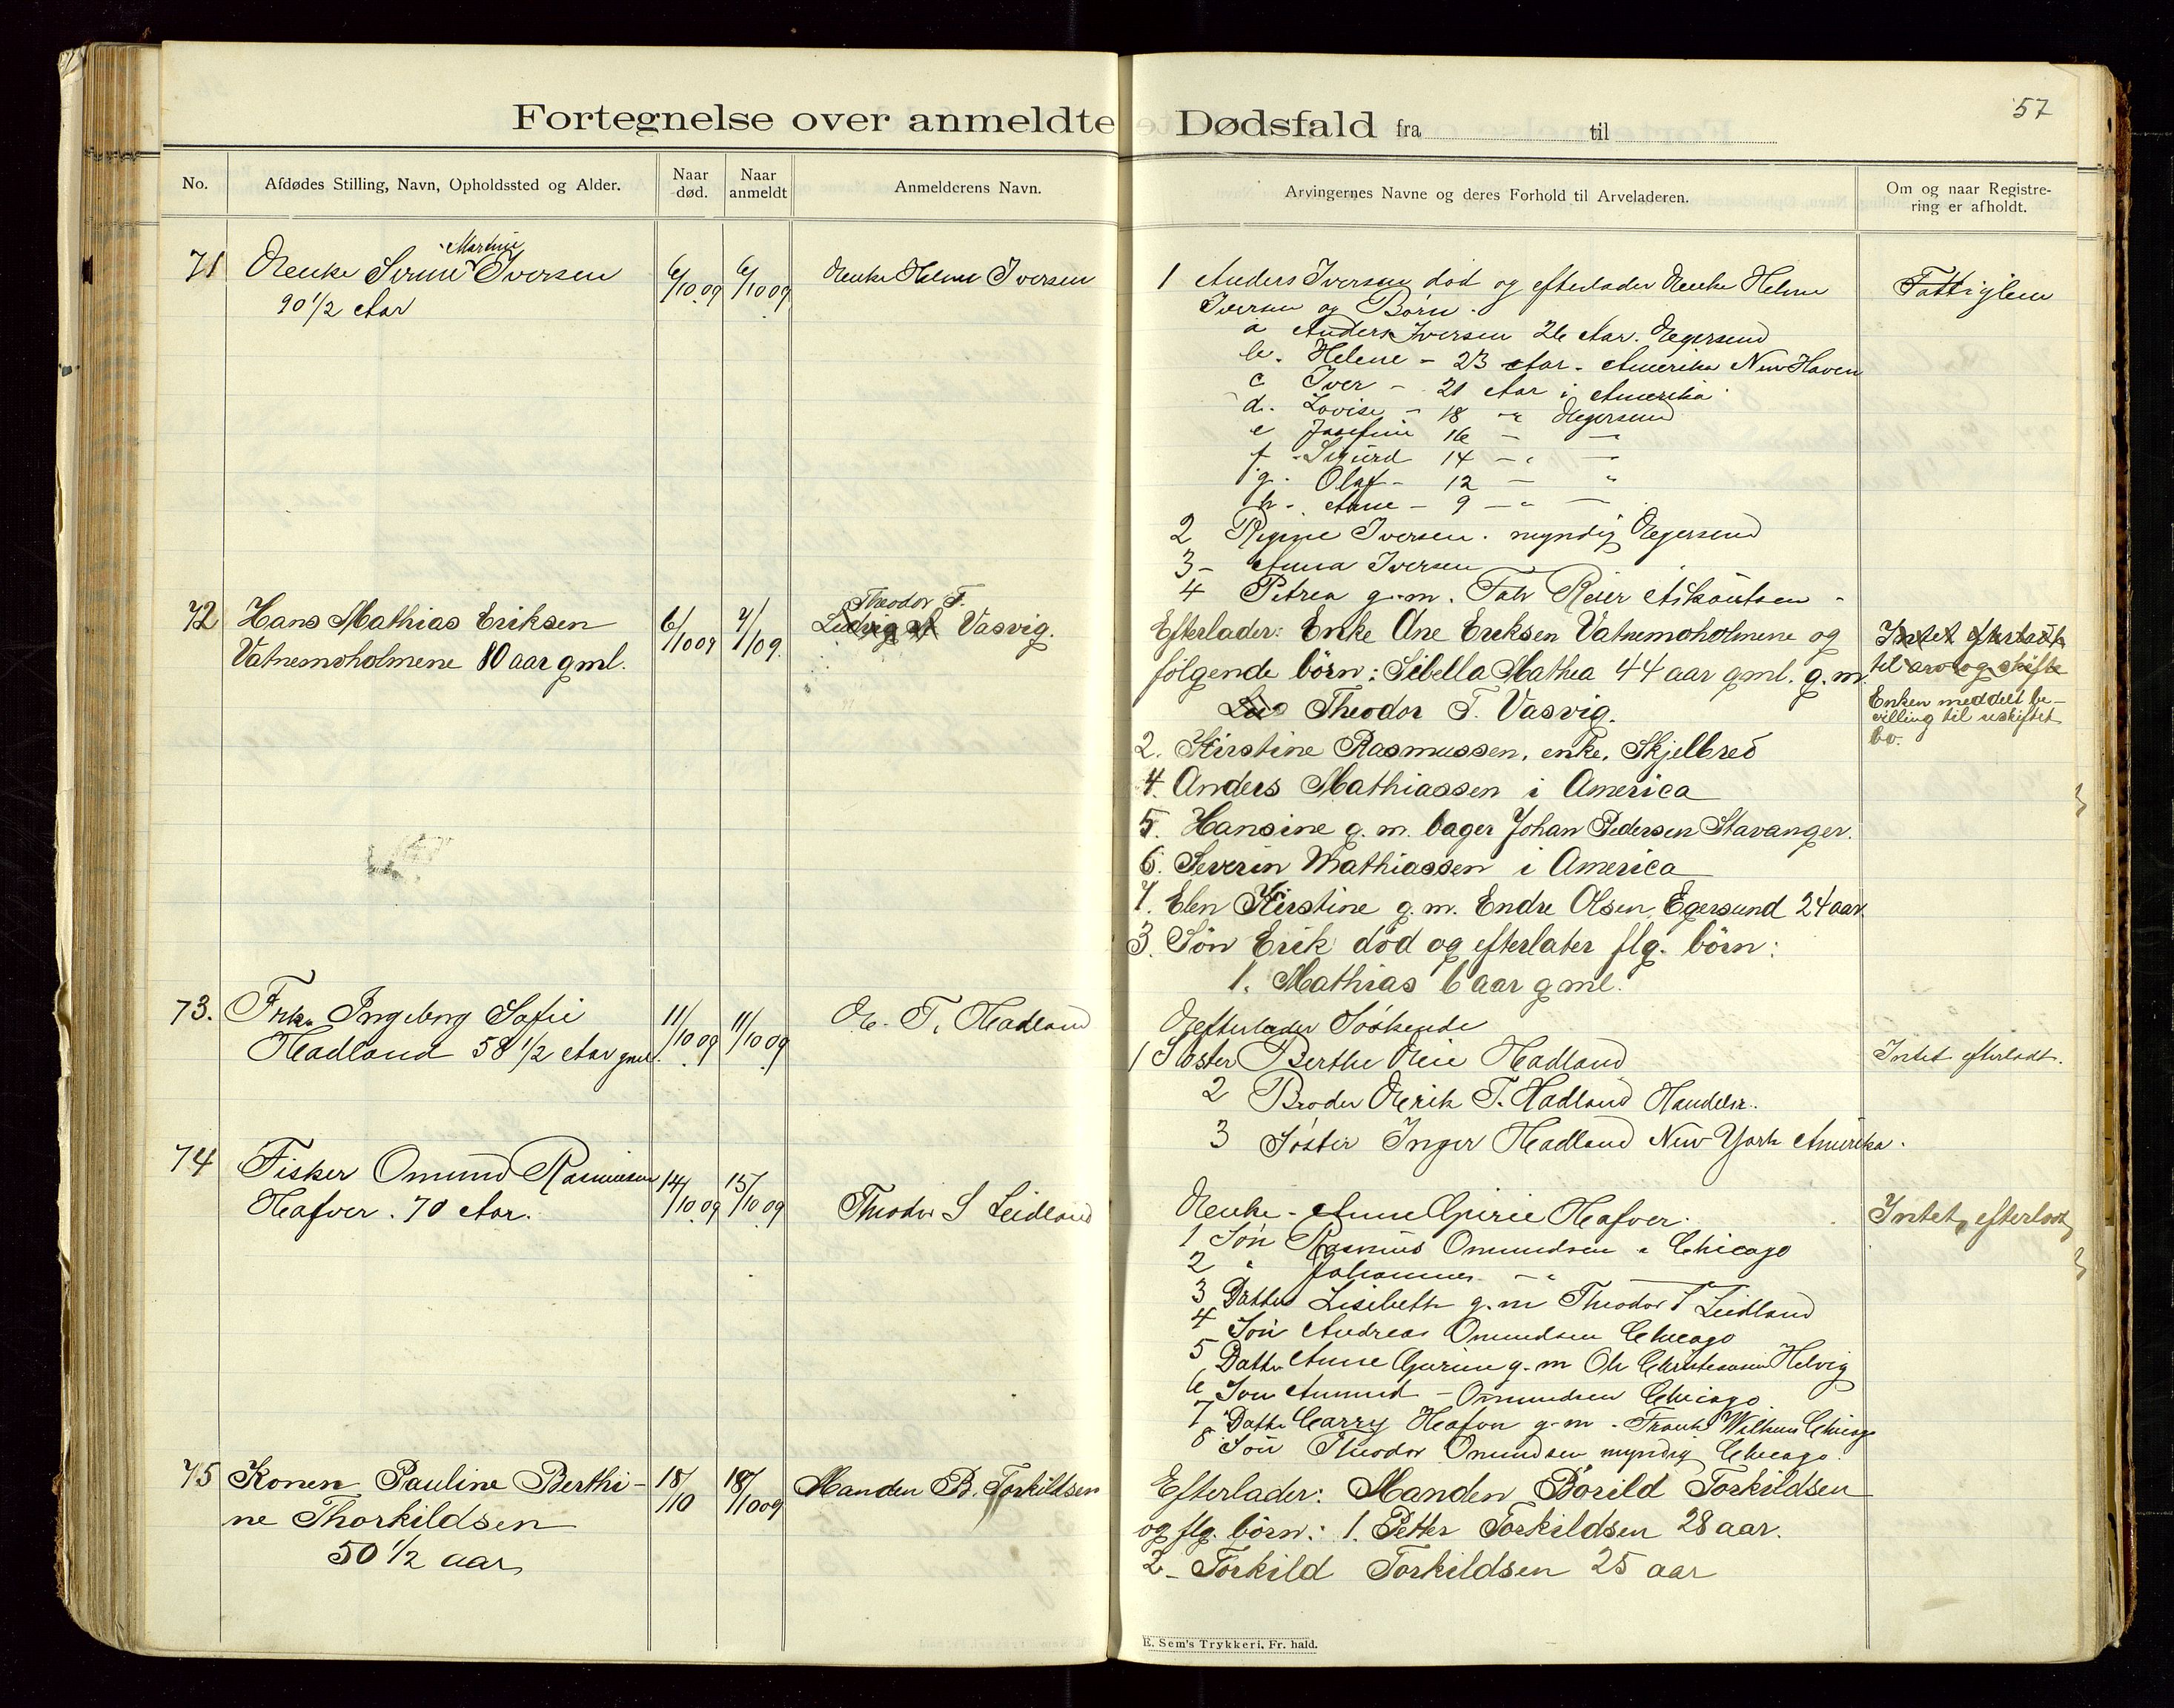 57
Fortegnelse over anmeldte Dødsfald fra til
No.
Afdødes Stilling, Navn, Opholdssted og Alder.
Naar død.
Naar anmeldt
Anmelderens Navn.
Arvingernes Navne og deres Forhold til Arveladeren.
Om og naar Registre-
ring er afholdt.
Martine
71 Enke Iversen
90 1/2 Aar
6/10 09
6/10 09
Enke Helene Iversen
1 Anders Iversen død og efterlader Enke Helene
Iversen og Børn.
a Anders Iversen 26 Aar. Egersund
b. Helene - 23 Aar - Amerika New Haven
c Iver - 21 Aar i Amerika
d. Lovise - 18 " Egersund
e Josefine 16 - -
f - Sigurd 14 - -
g. Olaf - 12 - "
h -. Ane - 9 - -
2 Regine Iversen. myndig Egersund
3 - Anna Iversen
4 Petrea g. m. Reier
Fattiglem
72 Hans Mathias Eriksen
Vatnemoholmene 80 aar gml.
6/10 09
7/10 09.
Theodor T.
Ludvig Vasvig.
Efterlader: Enke Ane Eriksen Vatnemoholmene og
følgende börn: Sibella Mathea 44 aar gml. g. m.
Theodor T. Vasvig.
2. Kirstine Rasmussen, enke, Skjelbred
4. Anders Mathiassen i America
5. Hansine g. m. bager Johan Pedersen Stavanger.
6. Severin Mathiassen i America
7. Elen Kirstine g. m. Endre Olsen, Egersund 24 aar
3. Sön Erik död og efterlater flg. börn:
1. Mathias 6 aar gml.
Intet efterladt
til arv og skifte
Enken meddelt be-
villing til uskiftet
bo.
73. Frk. Ingeborg Sofie
Hadland 58 1/2 Aar gml.
11/10 09
11/10 09
E. T. Hadland
Efterlader Søskende
1 Søster Berthe Hadland
2 Broder Erik T. Hadland Handelsr.
3 Søster Inger Hadland New York Amerika.
Intet efterladt.
74 Fisker Omund Rasmusen
Hafver. 70 Aar.
14/10 09
15/10 09
Theodor S Leidland
Enke - Anne Hafver.
1 Søn Rasmus Omundsen i Chicago
2 " Johannes - "
3 Datter Lisebeth g. m Theodor Leidland
4 Søn Andreas Omundsen Chicago
5 Datter Anne g. m Helvig
6 Søn Amund - Omundsen Chicago
7 Datter Carry g. m. Frank Chicago
8 Søn Theodor Omundsen myndig Chicago.
Intet efterladt
75 Konen Pauline Berthi-
ne Thorkildsen
50 1/2 aar
18/10
18/10 09
Manden B. Torkildsen
Efterlader: Manden Börild Torkildsen
og flg. börn: 1. Petter Torkildsen 28 aar.
2 - Torkild Torkildsen 25 aar
E. Sem's Trykkeri, Fr. hald.